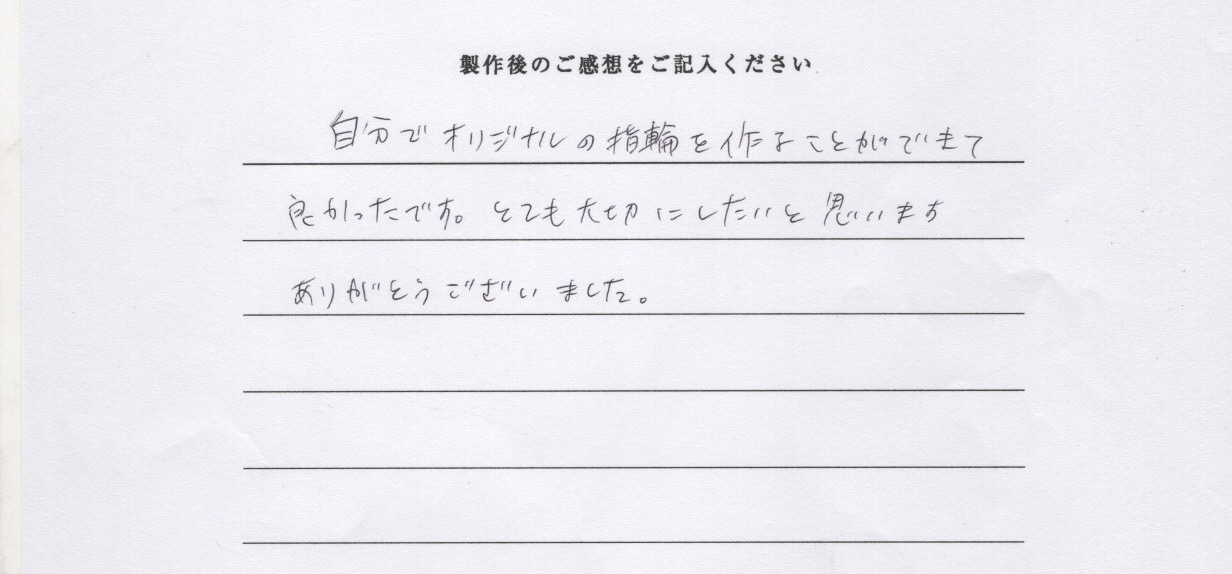 製作後のご感想をご記入ください
自分でオリジナルの指輪を作ることができて
良かったです。とても大切にしたいと思います
ありがとうございました。